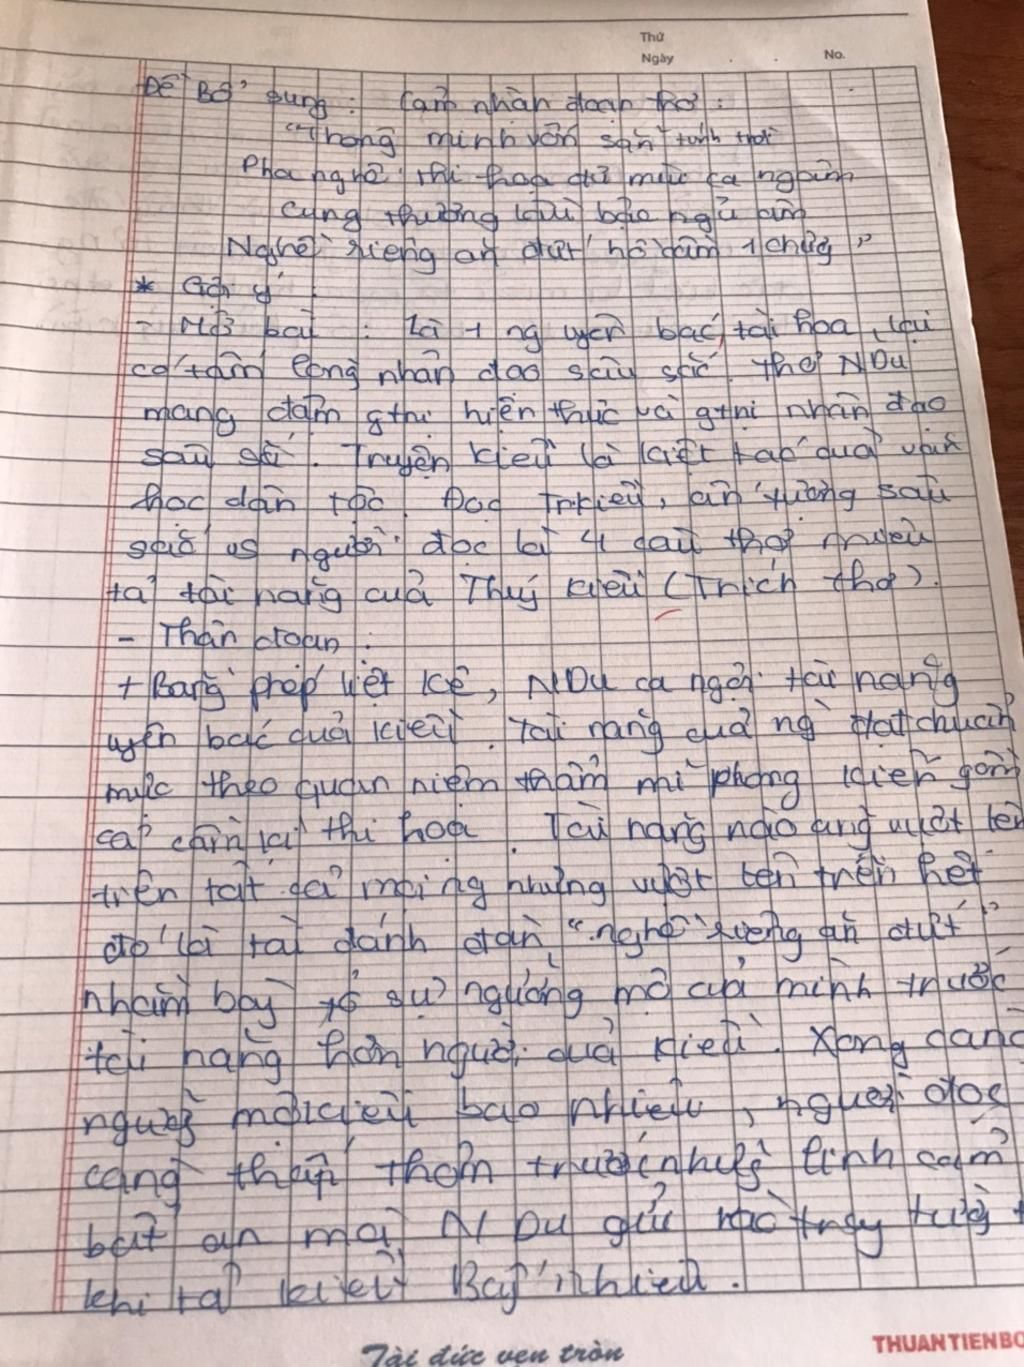 Thứ
Ngày . . No.
Đề Bổ sung : Cảm nhận đoạn thơ :
"Thông minh vốn sẵn tính trời
Pha nghề thi hoạ đủ mùi ca ngâm
Cung thương lầu bậc ngũ âm
Nghề riêng ăn đứt hồ cầm 1 chương"
* Gợi ý
- Mở bài : Là 1 ng uyên bác, tài hoa, lại
có tấm lòng nhân đạo sâu sắc. Thơ NDu
mang đậm gtrị hiện thực và gtrị nhân đạo
sâu sắc. Truyện Kiều là kiệt tác của văn
học dân tộc. Đọc Tr.Kiều, ấn tượng sâu
sắc vs người đọc là 4 câu thơ miêu
tả tài năng của Thuý Kiều (Trích thơ).
- Thân đoạn :
+ Bằng phép liệt kê, NDu ca ngợi tài năng
uyên bác của Kiều. Tài năng của ng đạt chuẩn
mực theo quan niệm thẩm mĩ phong kiến gồm
cả cầm kì thi hoạ. Tài năng nào cũng vượt lên
trên tất cả mọi ng nhưng vượt lên trên hết
đó là tài đánh đàn "nghề riêng ăn đứt"
nhằm bày tỏ sự ngưỡng mộ của mình trước
tài năng hơn người của Kiều. Xong càng
ngưỡng mộ Kiều bao nhiêu, người đọc
càng thấp thỏm trước những linh cảm
bất an mà N Du gửi vào trang
khi tả Kiều Bấy nhiêu.
Tài đức vẹn tròn
THUANTIENBO